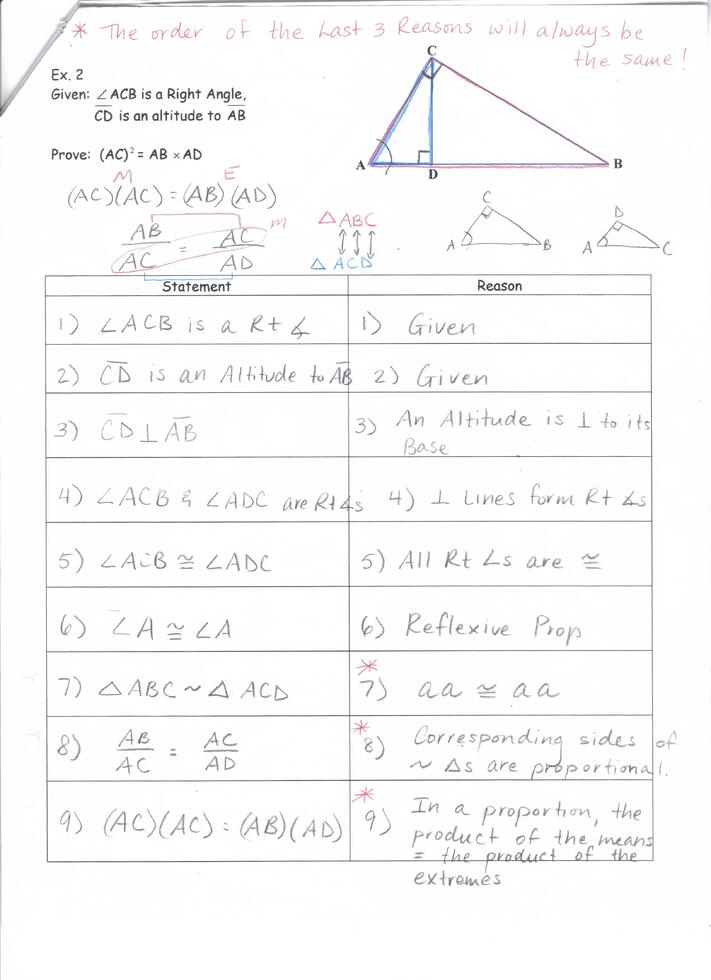 * The order of the Last 3 Reasons will always be
the same!
Ex. 2
Given: ∠ACB is a Right Angle,
CD is an altitude to AB
Prove: (AC)² = AB × AD
M E
(AC)(AC) = (AB)(AD)
AB/AC = AC/AD m
△ABC
△ACD
C
A D B
C
A B
D
A C
Statement Reason
1) ∠ACB is a Rt ∡ 1) Given
2) CD is an Altitude to AB 2) Given
3) CD ⊥ AB 3) An Altitude is ⊥ to its
Base
4) ∠ACB & ∠ADC are Rt ∡s 4) ⊥ Lines form Rt ∡s
5) ∠ACB ≅ ∠ADC 5) All Rt ∠s are ≅
6) ∠A ≅ ∠A 6) Reflexive Prop
*
7) △ABC ~ △ACD 7) aa ≅ aa
*
8) AB/AC = AC/AD 8) Corresponding sides of
~ △s are proportional.
*
9) (AC)(AC) = (AB)(AD) 9) In a proportion, the
product of the means
= the product of the
extremes